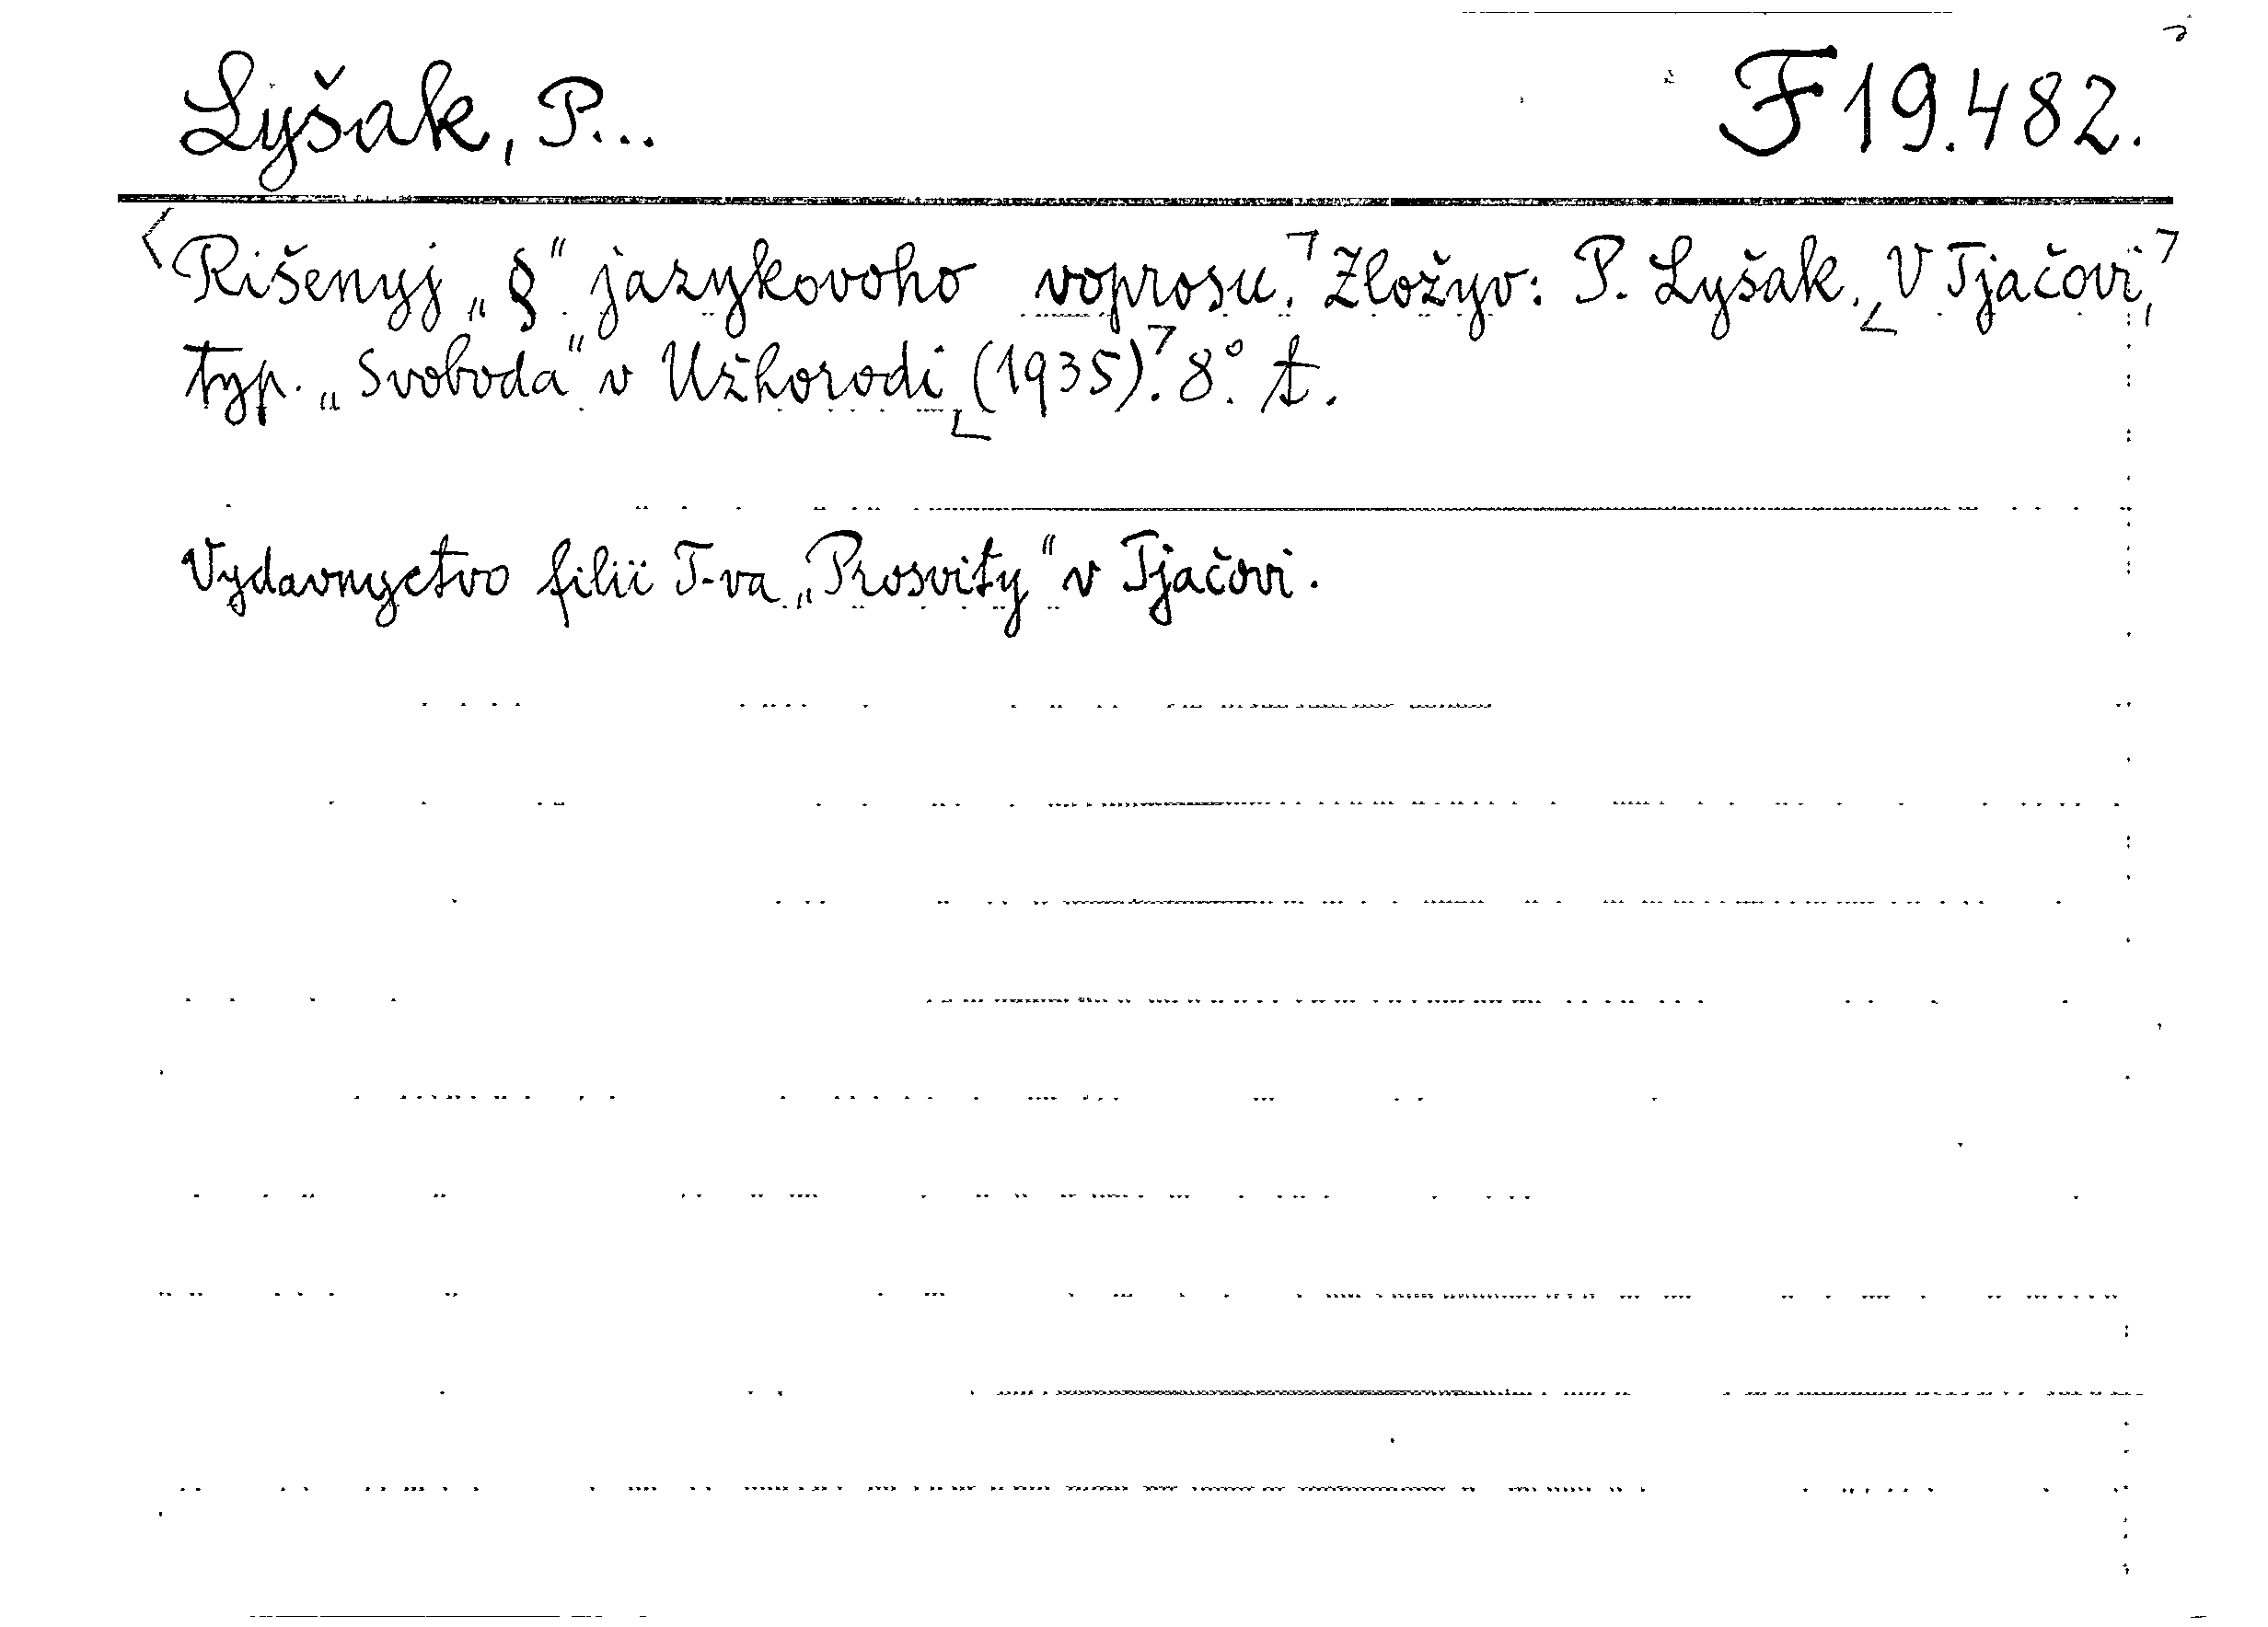 Lyšak, P... F 19.482.
Rišenyj „§“ jazykovoho voprosu. Zložyv: P. Lyšak. V Tjačovi,
typ. „Svoboda“ v Užhorodi (1935). 8°. t.
Vydavnyctvo filiï T-va „Prosvity“ v Tjačovi.